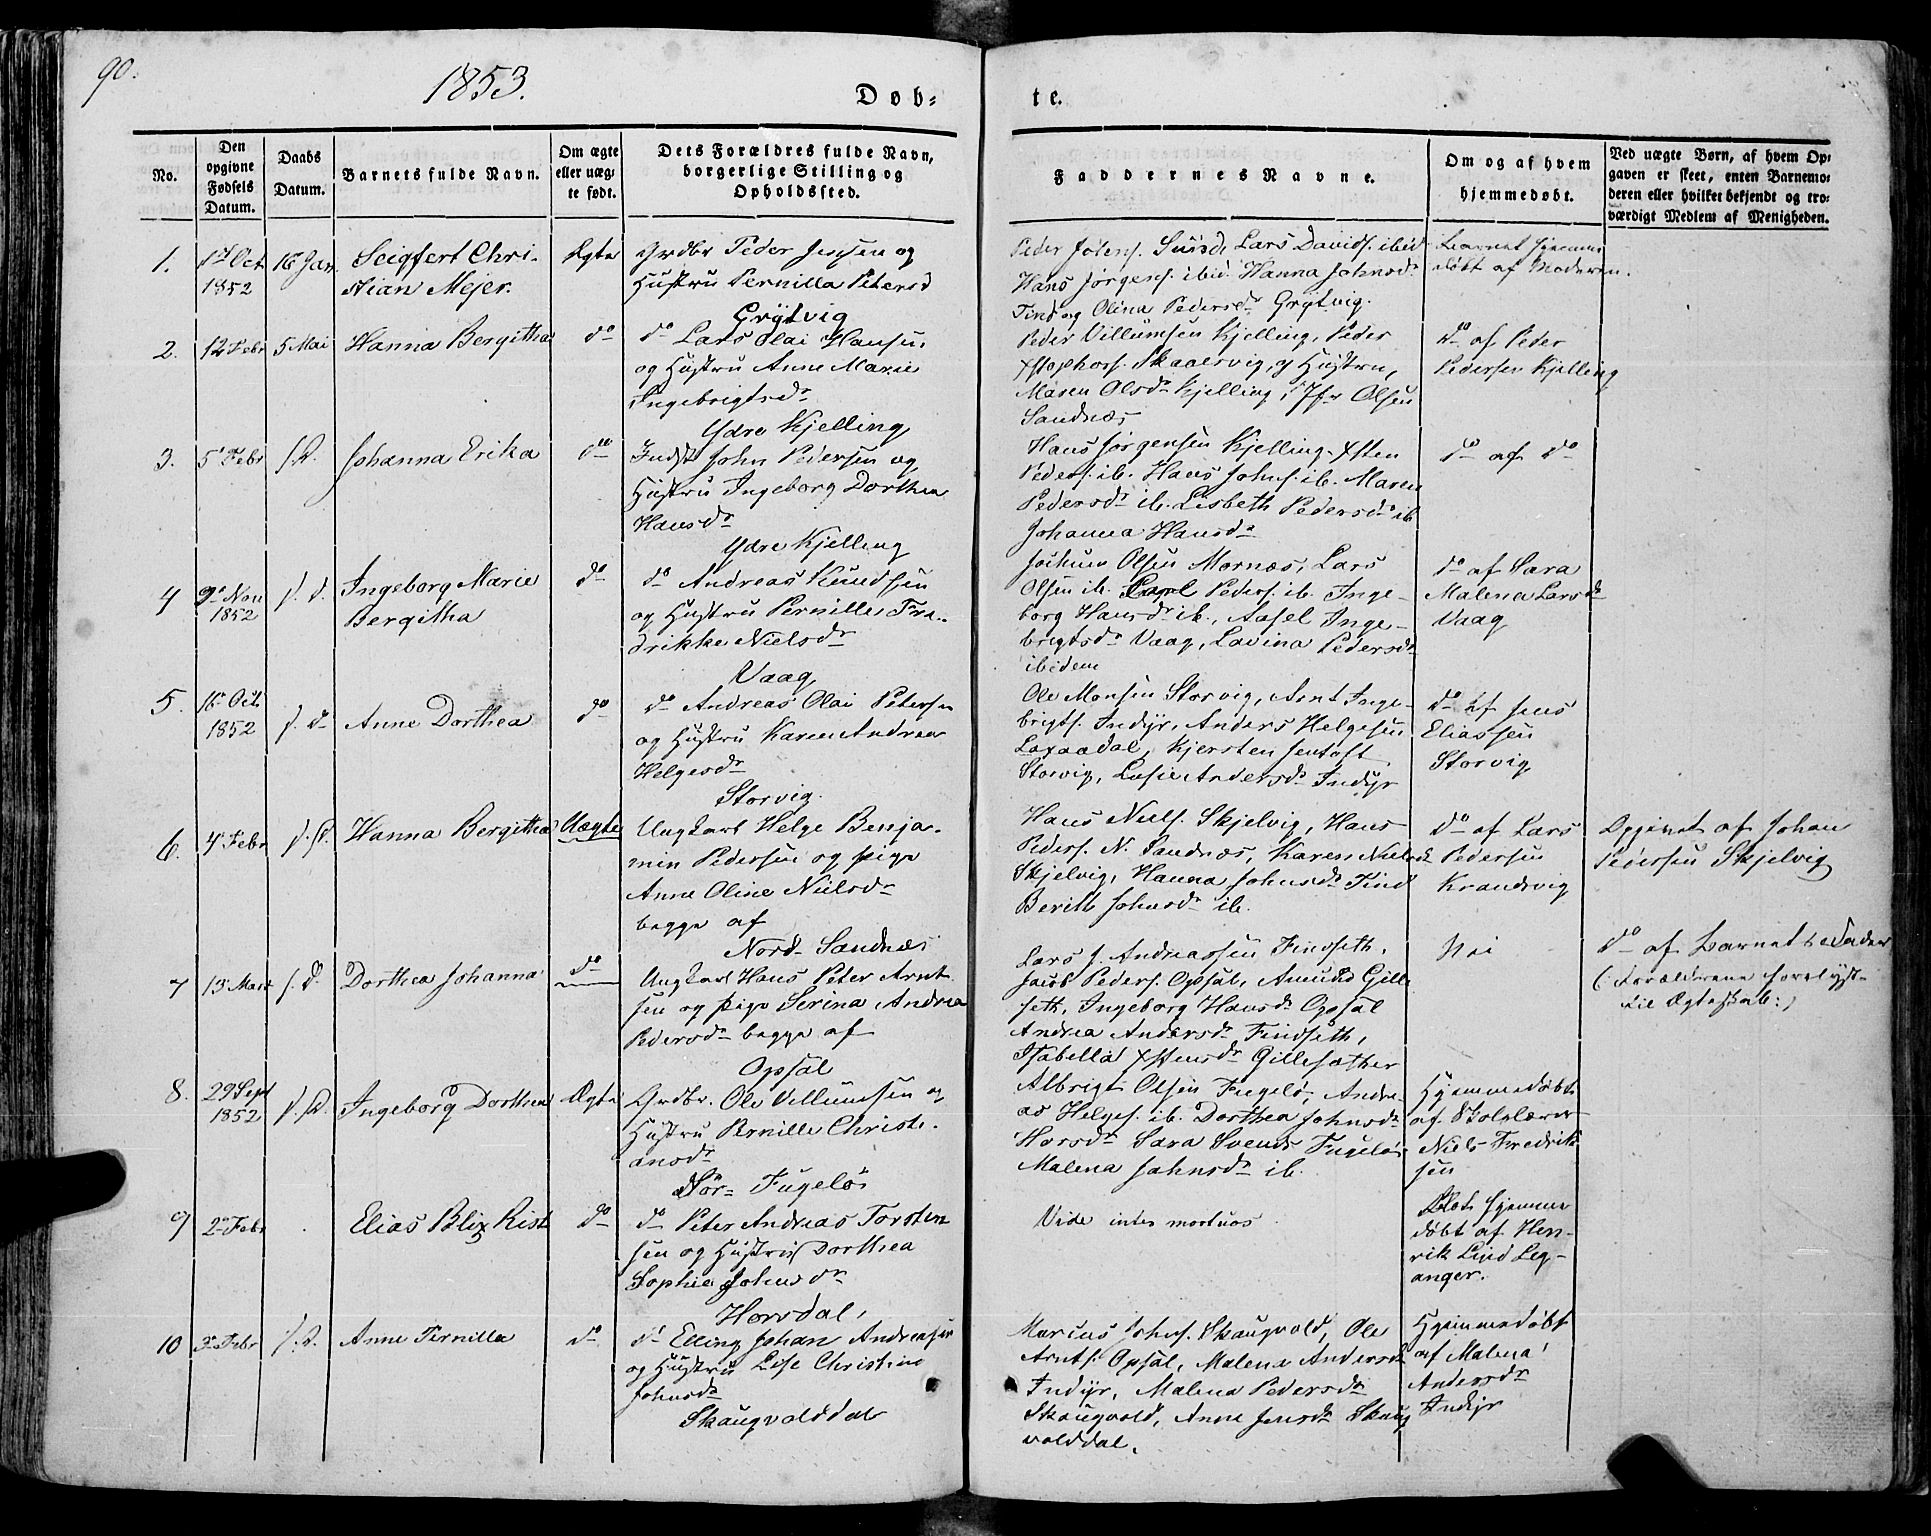 90.
1853.
Døb-
te.
No.
Den opgivne Fødsels Datum.
Daabs Datum.
Barnets fulde Navn.
Om ægte eller uæg- te født.
Dets Forældres fulde Navn, borgerlige Stilling og Opholdssted.
Faddernes Navne.
Om og af hvem hjemmedøbt.
Ved uægte Børn, af hvem Op- gaven er skeet, enten Barnemo- deren eller hvilket bekjendt og tro- værdigt Medlem af Menigheden.
1.
1852
16 Jan.
Seigfert Chri-
stian Mejer.
Ægte
Grdbr Peder Jensen og
Hustru Pernilla Petersd
Grytvig
Hans Jørgens. ibid. Hanna Johnsdr
Find og Olina Pedersdr Grytvig.
Barnet hjemme
døbt af Moderen.
2.
12 Febr
5 Mai
Hanna Bergitha
do
do Lars Olai Hansen
og Hustru Anne Marie
Ingebrigtsdr
Ydre Kjelling
Peder Villumsen Kjelling, Peder
Skaalsvig, og Hustru,
Maren Olsdr Kjelling, Olsen
Sandnæs
do af Peder
Pedersen Kjelling
3.
5 Febr
s. D.
Johanna Erika
do
Indst John Pedersen og
Hustru Ingeborg Dorthea
Hansdr
Ydre Kjelling
Hans Jørgensen Kjelling, Xsten
Peders. ib. Hans Johns. ib. Maren
Pedersdr ib. Lisbeth Pedersdr ib
Johanna Hansdr
do af do
4
9 Nov
1852
s. d.
Ingeborg Marie
Bergitha
do
do Andreas Knudsen
og Hustru Pernille Fre-
drikke Nielsdr
Vaag
Jochum Olsen Mornæs, Lars
Olsen ib. Carl Peders. ib. Inge-
borg Hansdr ib., Aasel Inge-
brigtsdr Vaag, Lavina Pedersdr
ibidem
do af Sara
Malena Larsdr
Vaag
5.
16 Oct.
1852
s. d
Anne Dorthea
do
do Andreas Olai Petersen
og Hustru Karen Andrea
Helgesdr
Storvig.
Ole Monsen Storvig, Arnt Inge-
brigts. Indyr, Anders Helgesen
Laxaadal, Kjersten Jentoft
Storvig, Andersdr Indyr
do af Jens
Eliassen
Storvig
6.
4 Febr
s. D.
Hanna Bergitha
Uægte
Ungkarl Helge Benja-
min Pedersen og pige
Anne Oline Nielsdr
begge af
Nord-Sandnæs
Hans Niels. Skjelvig, Hans
Peders. N. Sandnæs, Karen Nielsdr
Skjelvig, Hanna Johnsdr Find
Berith Johnsdr ib.
do af Lars
Pedersen
Krandsvig
Opgivet af Johan
Pedersen Skjelvig
7
13 Mars
s. D.
Dorthea Johanna
do
Ungkarl Hans Peter Arnt-
sen og pige Serina Andrea
Pedersdr begge af
Opsal
Lars J. Andreassen Findseth,
Jacob Peders. Opsal, Amund Gille
seth, Ingeborg Hansdr Opsal
Andrea Andersdr Findseth,
Isabella Xstensdr Gillesæther
Nei
do af Barnets Fader
(: Forældrene forelyst
til Ægteskab:)
8.
29 Sept
1852
s. D.
Ingeborg Dorthea
Ægte
Grdbr. Ole Villumsen og
Hustru Pernille Christi-
ansdr
Sør-Fugelø
Albrigt Olsen Fugelø, Andre-
as Helges. ib. Dorthea Johnsdr
Horsdr Sara Svends Fugelø,
Malena Johnsdr ib.
Hjemmedøbt
af Skolelærer
Niels Fredrik-
sen
9
2 Febr
Elias Blix Rist
do
do Peter Andreas Torsten
sen og Hustru Dorthea
Sophia Johnsdr
Horsdal,
Vide inter mortuos
Blot hjemme
døbt af Hen-
rik Lind Leg-
anger.
10
3 Febr
s. D.
Anne Pernilla
do
do Elling Johan Andreasen
og Hustru Lise Christine
Johnsdr
Skaugvolddal
Marcus Johns. Skaugvold, Ole
Arnts. Opsal, Malena Andersdr
Indyr, Malena Pedersdr
Skaugvold, Anne Jensdr Skaug
volddal.
Hjemmedøbt
af Malena
Andersdr
Indyr